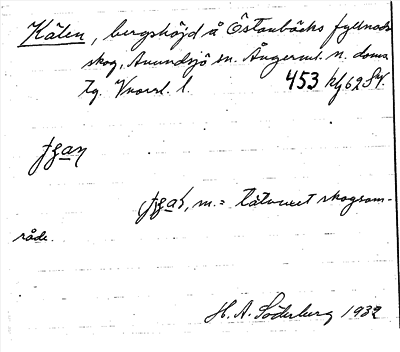 Kälen, bergshöjd å Östanbäcks fyllnads
skog, Anundsjö sn. Ångerml. n. doms
tg. Vnorrl. l. 453 kfg 62 SV.
m. = tätvuxet skogsom-
råde.
H. A. Söderberg 1932